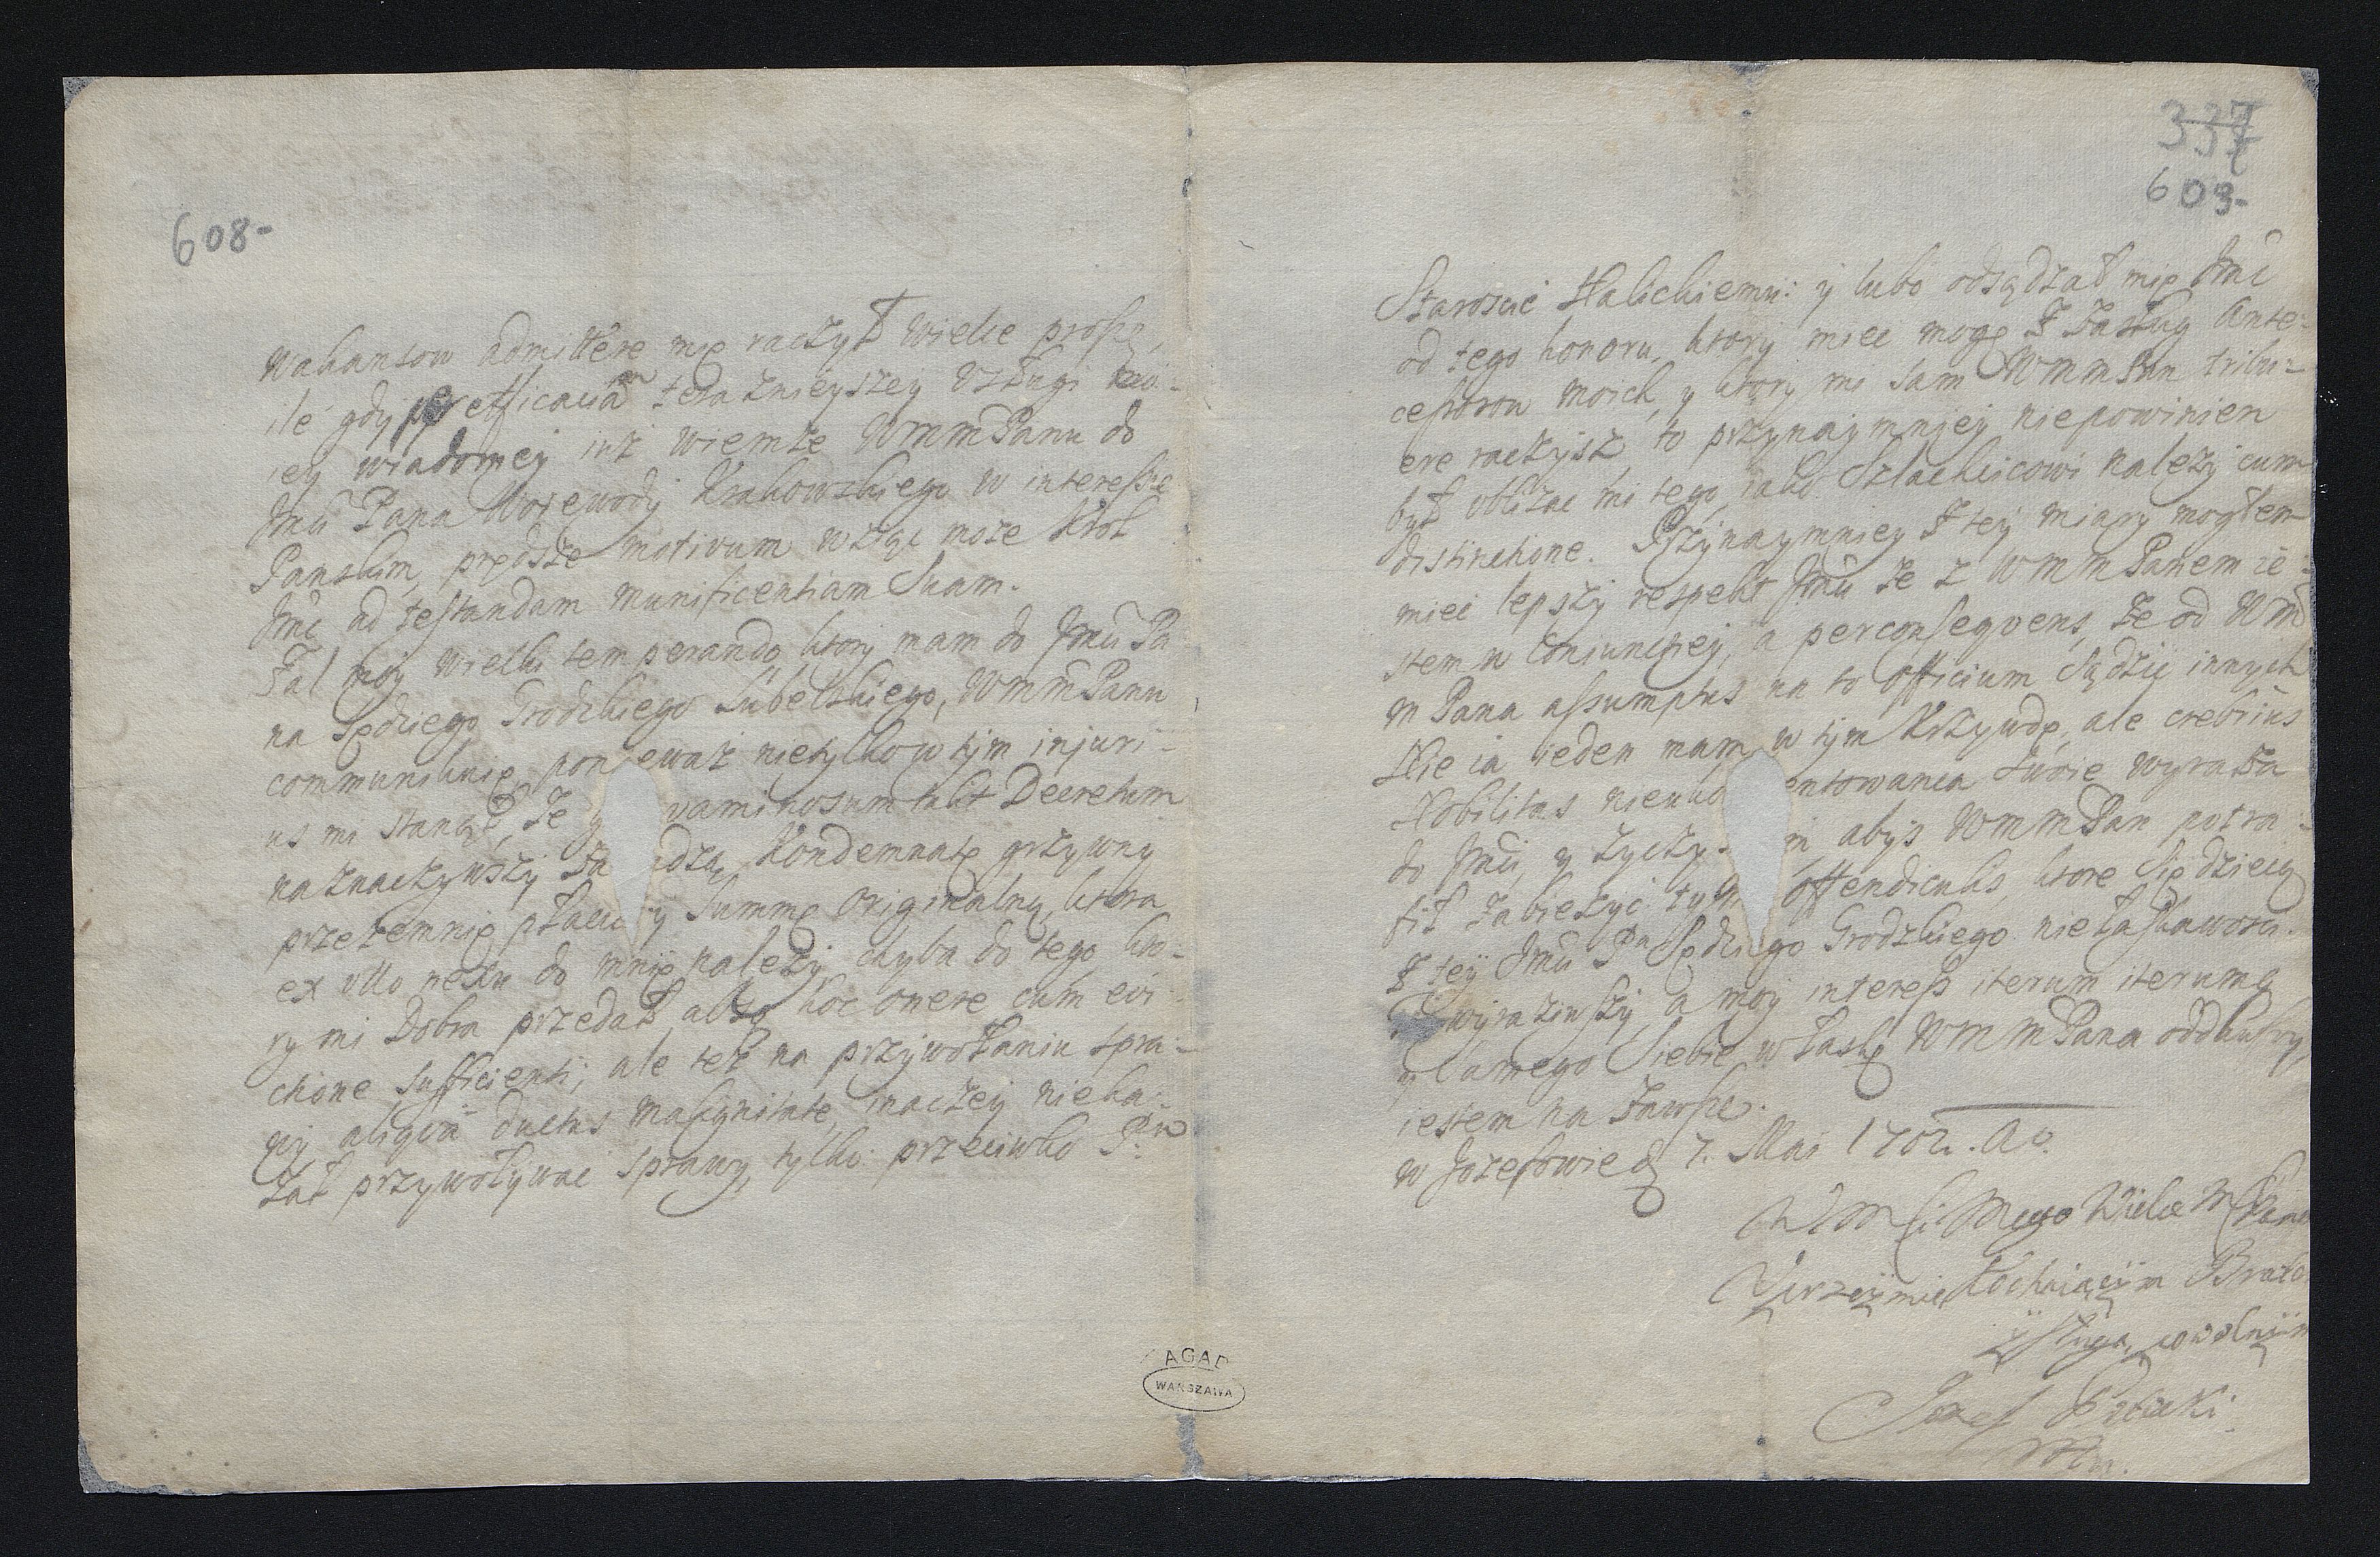 608-
Wakansow admittere mię raczył wielce proszę,
ile gdy per efficaciã teraznieyszey Vsługi
iey wiadomey iuż wiemże WMMPanu do
Jmći Pana Wojewody Krakowskiego w interessie
Panskim, prędsze motivum wziąć może Krol
Jmć ad testandam munificentiam Suam.
Żal moy wielki temperando, ktory mam do Jmći Pa-
na Sędziego Grodzkiego Lubelskiego, WMMPanu
communikuię, poniewaz nietylko w tym injuri-
us mi stanął, że vaminosum tulit Decretum
naznaczywszy Kondemnatę grzywny
przezemnie Summę Originalną, ktora
ex vllo nexu do mnie należy chyba do tego kto-
ry mi Dobra przedał absq hoc onere cum evi-
ctione sufficienti; ale też na przywołaniu spra-
wy aliqua ductus malignitate, inaczey nieka-
zał przywoływać sprawy, tylko przeciwko P: Pu
337
609-
Staroscić Halickiemu: y lubo odsądzał mię Jmć
od tego honoru, ktory mieć mogę z zasług Ante-
cessorow moich, y ktory mi sam WMMPan tribu-
ere raczysz, to przynaymniey niepowinien
był vbliżać mi tego, iako Szlachcicowi należy cum
distinctione. Przynaymniey z tey miary mogłem
mieć lepszy respekt Jmći że z WMMPanem ie-
stem w Coniunctiey, a perconsequens, że od WM
MPana assumptus na to officium Sądzić innych
Nie ia ieden mam w tym Krzywdę, ale crebrius
Nobilitas entowania swoie wyraża
do Jmći, y abyś WMMPan potra-
fił zabieżyć tym offendiculis, ktore się dzieią
z tey Jmći Pa Sędziego Grodzkiego niełaskawości.
wyraziwszy, a moy interess iterum iterumq
y samego siebie w łaskę WMMPana oddawszy,
iestem na zawsze.
w Jozefowie d 7. Mai 1702. Ao.
WMSci Mego Wielce MPana
Vprzeymie kochaiącym Bratem
y sługą powolnym
Jozef Potocki
AGAD
WARSZAWA